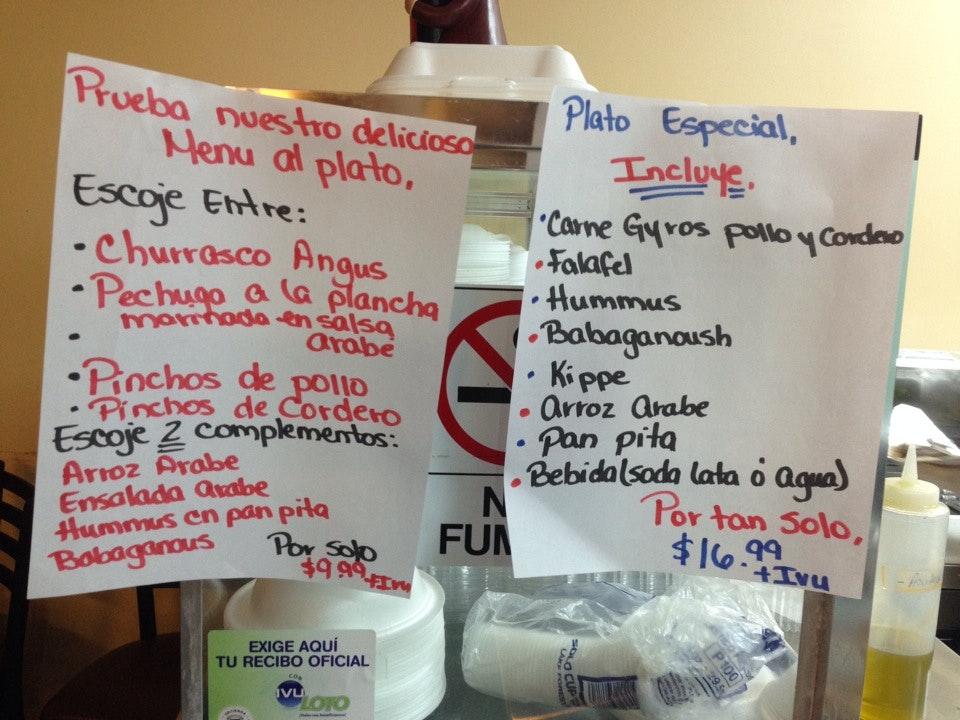 Prueba nuestro delicioso
Menu al plato.
Escoje Entre:
• Churrasco Angus
• Pechuga a la plancha
marinada en salsa
• arabe
• Pinchos de pollo
• Pinchos de Cordero
Escoje 2 complementos:
Arroz Arabe
Ensalada arabe
Hummus en pan pita
Babaganous
Por solo
$9.99 +Ivu
Plato Especial,
Incluye.
• Carne Gyros pollo y Cordero
• Falafel
• Hummus
• Babaganoush
• Kippe
• Arroz Arabe
• Pan pita
• Bebida (soda lata ó agua)
Por tan solo,
$16.99
+Ivu
N
FUM
EXIGE AQUÍ
TU RECIBO OFICIAL
CON
IVU
LOTO
SOLO CUP
P100